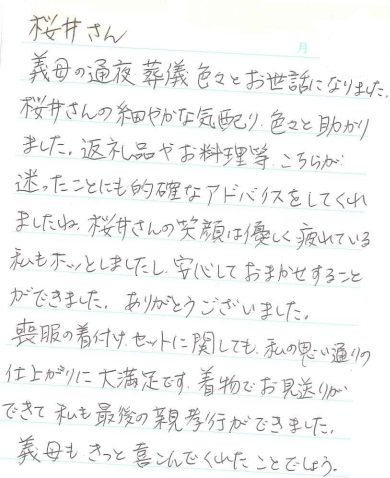 桜井さん
月
義母の通夜、葬儀 色々とお世話になりました。
桜井さんの細やかな気配り、色々と助かり
ました。返礼品やお料理等、こちらが
迷ったことにも的確なアドバイスをしてくれ
ましたね。桜井さんの笑顔は優しく疲れている
私もホッとしましたし、安心しておまかせすること
ができました。ありがとうございました。
喪服の着付け、セットに関しても、私の思い通りの
仕上がりに大満足です。着物でお見送りが
できて私も最後の親孝行ができました。
義母もきっと喜こんでくれたことでしょう。